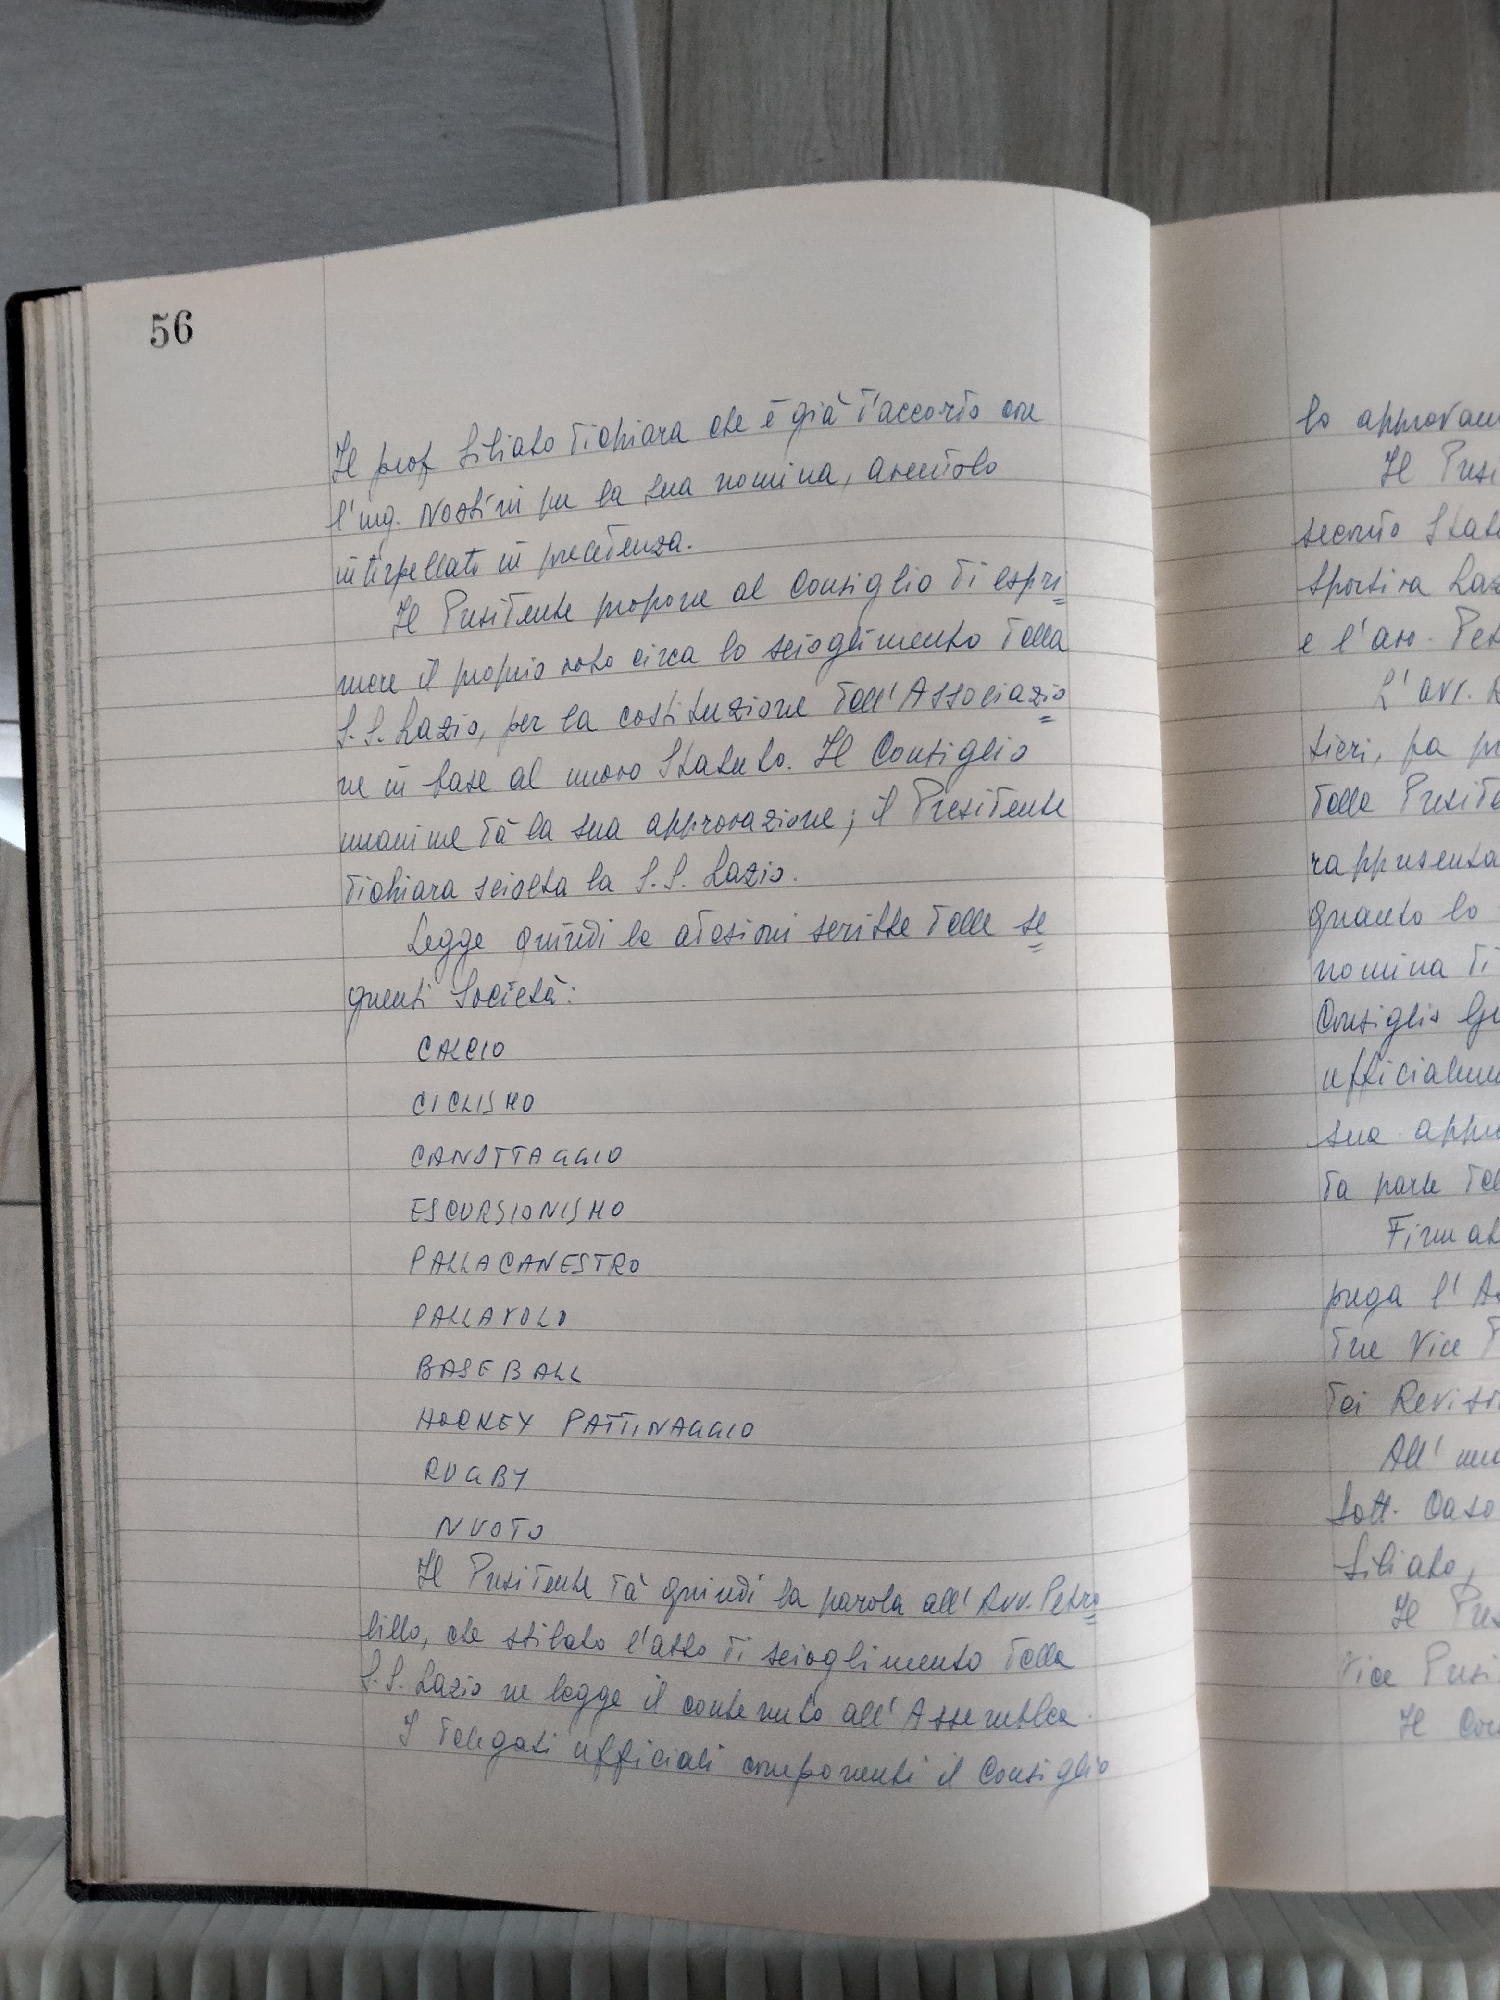 56
Il prof Siliato dichiara che è già d'accordo con
l'ing. Nostini per la sua nomina, avendolo
interpellato in precedenza.
Il Presidente propone al Consiglio di espri=
mere il proprio voto circa lo scioglimento della
S.S. Lazio, per la costituzione dell'Associazio=
ne in base al nuovo Statuto. Il Consiglio
unanime dà la sua approvazione; il Presidente
dichiara sciolta la S.S. Lazio.
Legge quindi le adesioni scritte delle se=
guenti Società:
CALCIO
CICLISMO
CANOTTAGGIO
ESCURSIONISMO
PALLACANESTRO
PALLAVOLO
BASEBALL
HOCKEY PATTINAGGIO
RUGBY
NUOTO
Il Presidente dà quindi la parola all'Avv. Petro=
lillo, che stilato l'atto di scioglimento della
S.S. Lazio ne legge il contenuto all'Assemblea.
I delegati ufficiali componenti il Consiglio
lo approvan
Il Presi
secondo Statu
Sportiva Laz
e l'avv. Pet
L'avv.
tieri, fa pr
della Preside
rappresenta
quanto lo
nomina di
Consiglio Ge
ufficialmen
sua appro
da parte del
Firmat
prega l'As
due Vice P
dei Reviso
All'una
Dott.
Siliato,
Il Pres
Vice Presi
Il Con